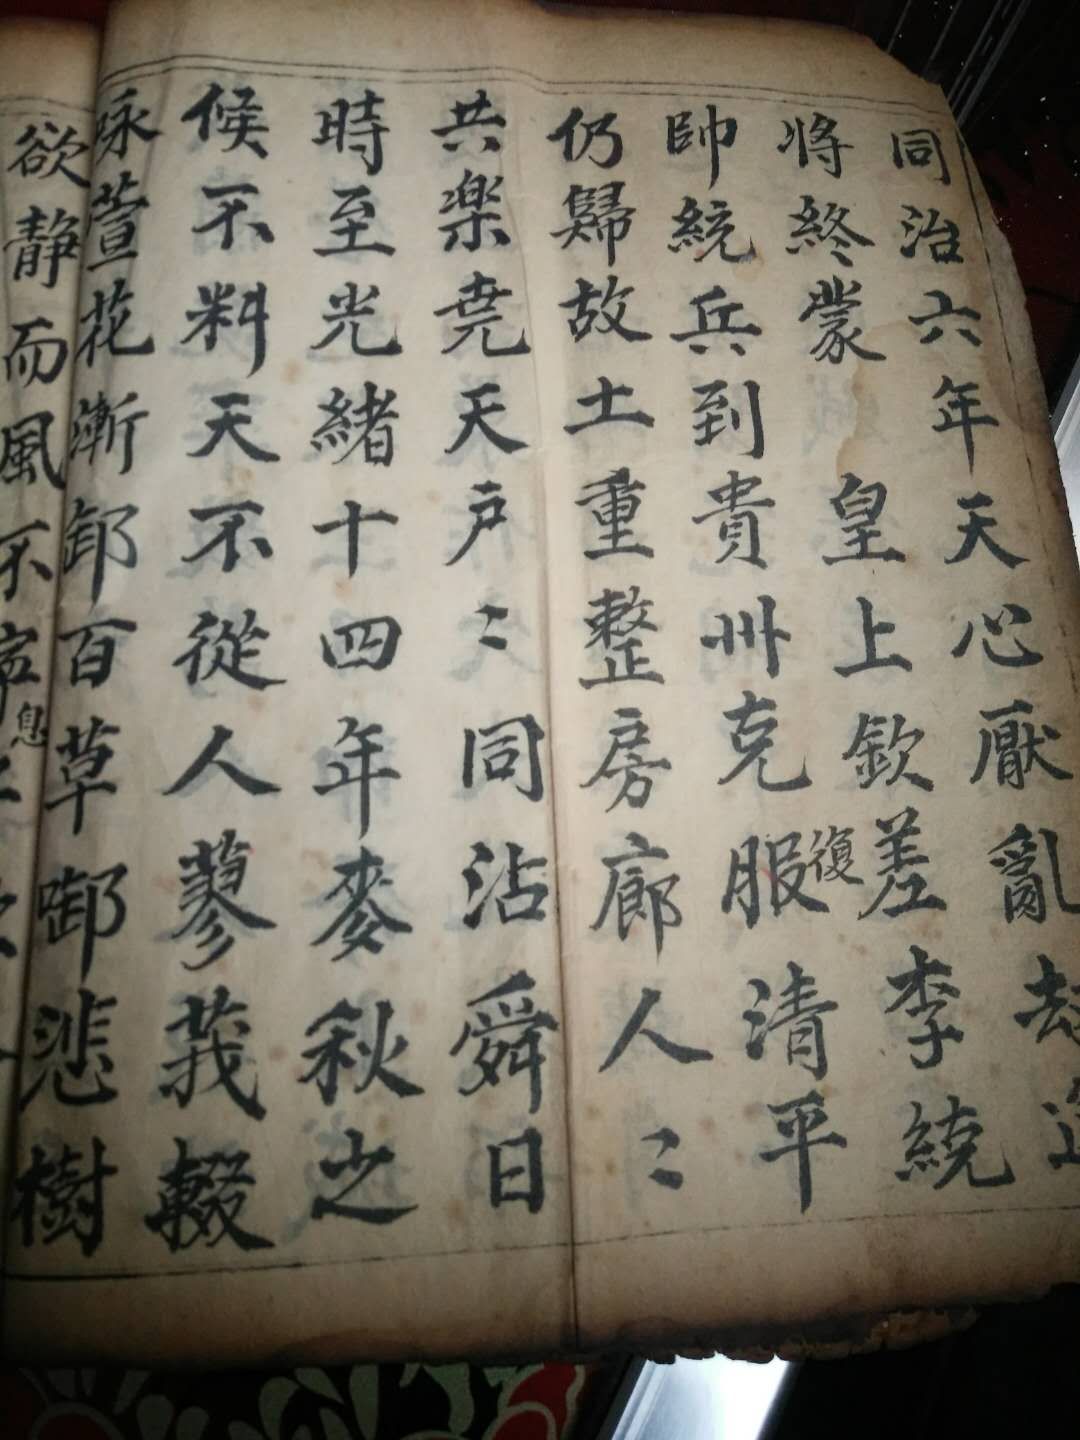 同治六年天心厭亂劫
將終蒙皇上欽差李統
帥統兵到貴州克服復清平
仍歸故土重整房廊人〻
共樂堯天戶〻同沾舜日
時至光緒十四年麥秋之
候不料天不從人蓼莪輟
咏萱花漸卸百草啣悲樹
欲静而風不寍息